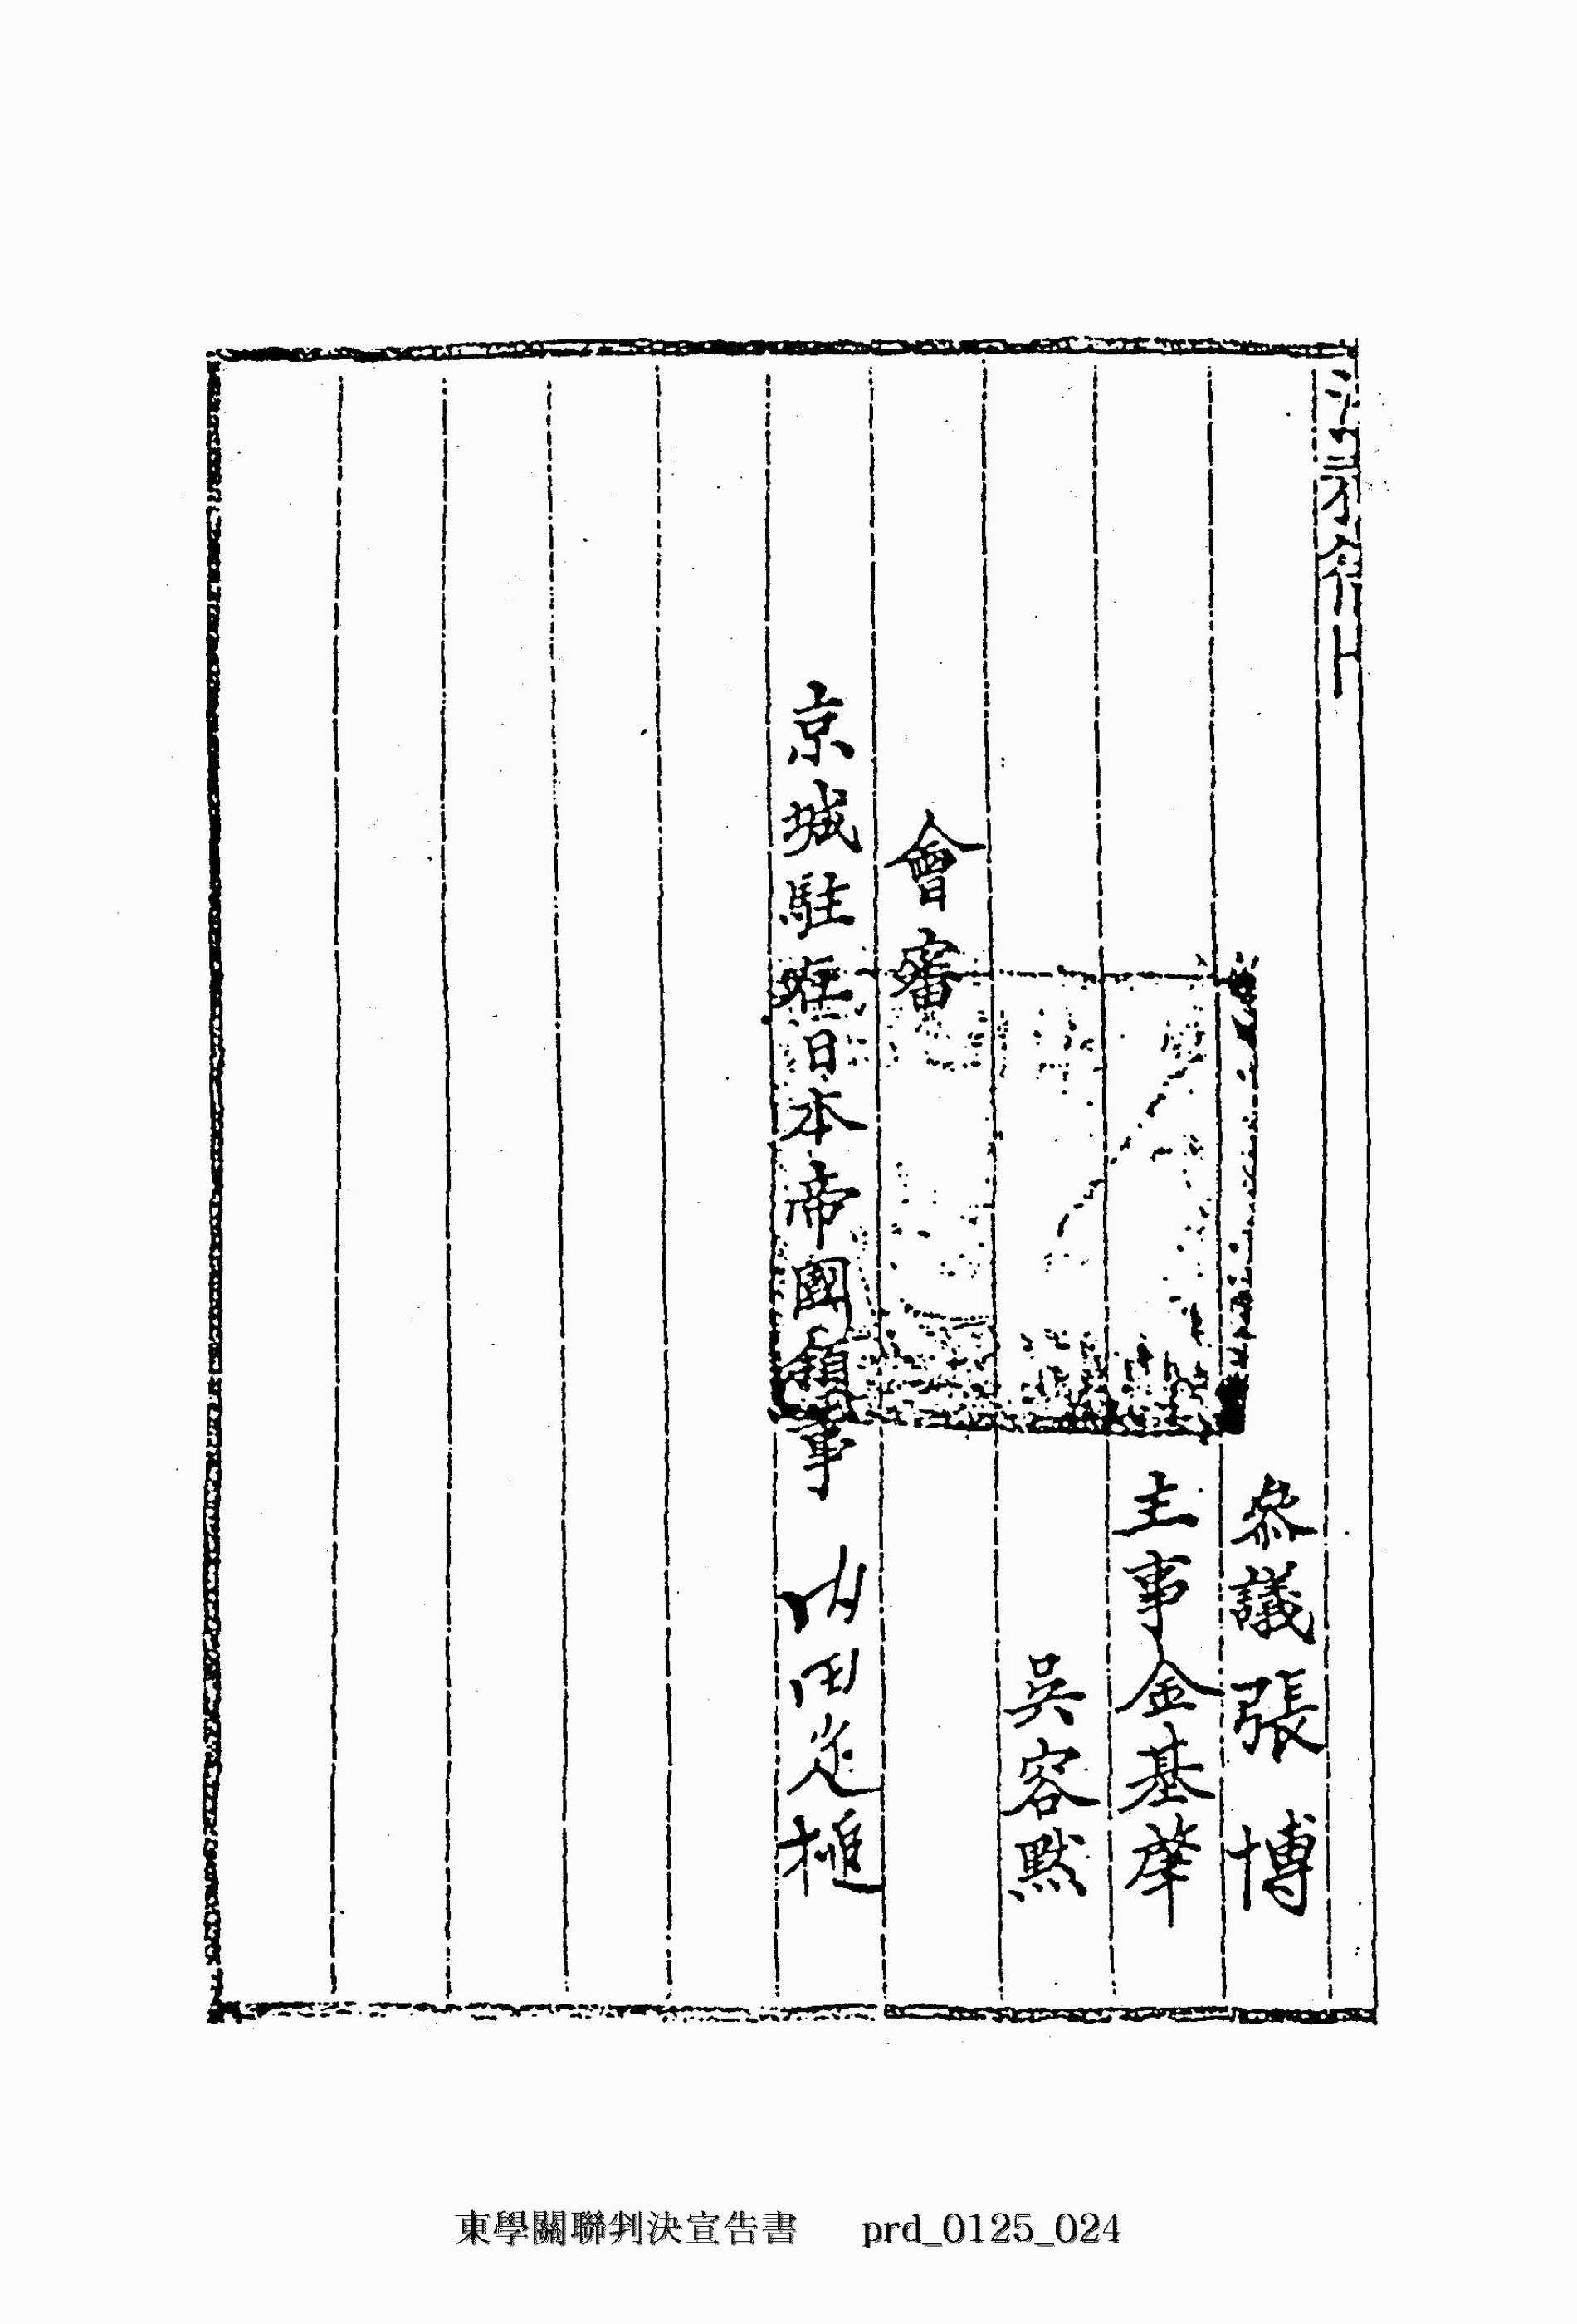 參議張 博
主事金基肇
吳容默
會審
京城駐在日本帝國領事 內田定槌
東學關聯判決宣告書 prd_0125_024